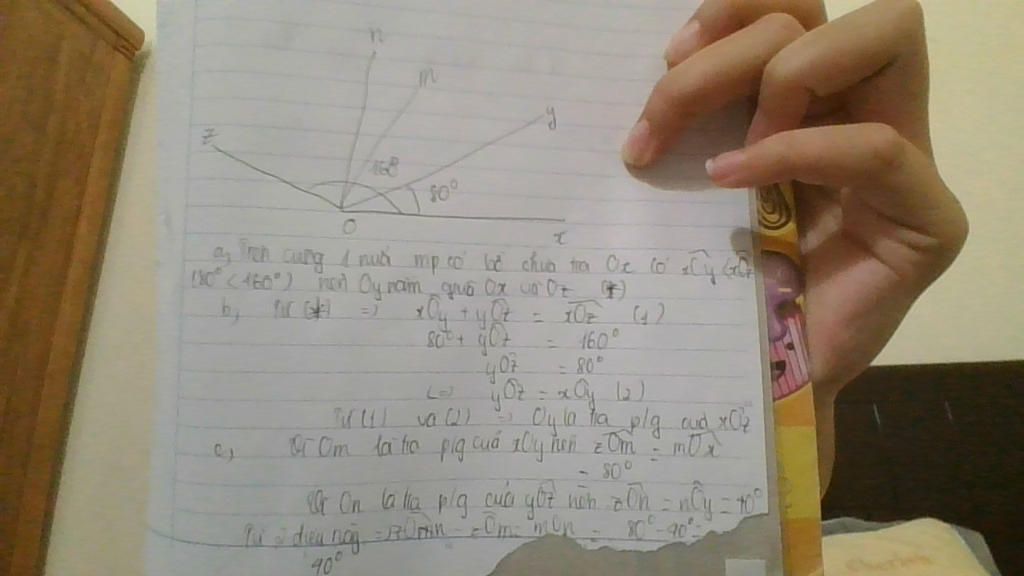 n
m
y
z
160°
80°
O
x
a, Trên cùng 1 nửa mp có bờ chứa tia Ox có xÔy < xÔz
(80° < 160°) nên Oy nằm giữa Ox và Oz (*)
b, Từ (*) => xÔy + yÔz = xÔz (1)
80° + yÔz = 160°
yÔz = 80°
<=> yÔz = xÔy (2)
Từ (1) và (2) => Oy là tia p/g của xÔz
c, Vì Om là tia p/g của xOy nên zÔm = mÔx
= 80°
Vì On là tia p/g của yÔz nên zÔn = nÔy = 40°
Từ 2 điều này = zÔm = mÔn = 80° - 40° =
40°